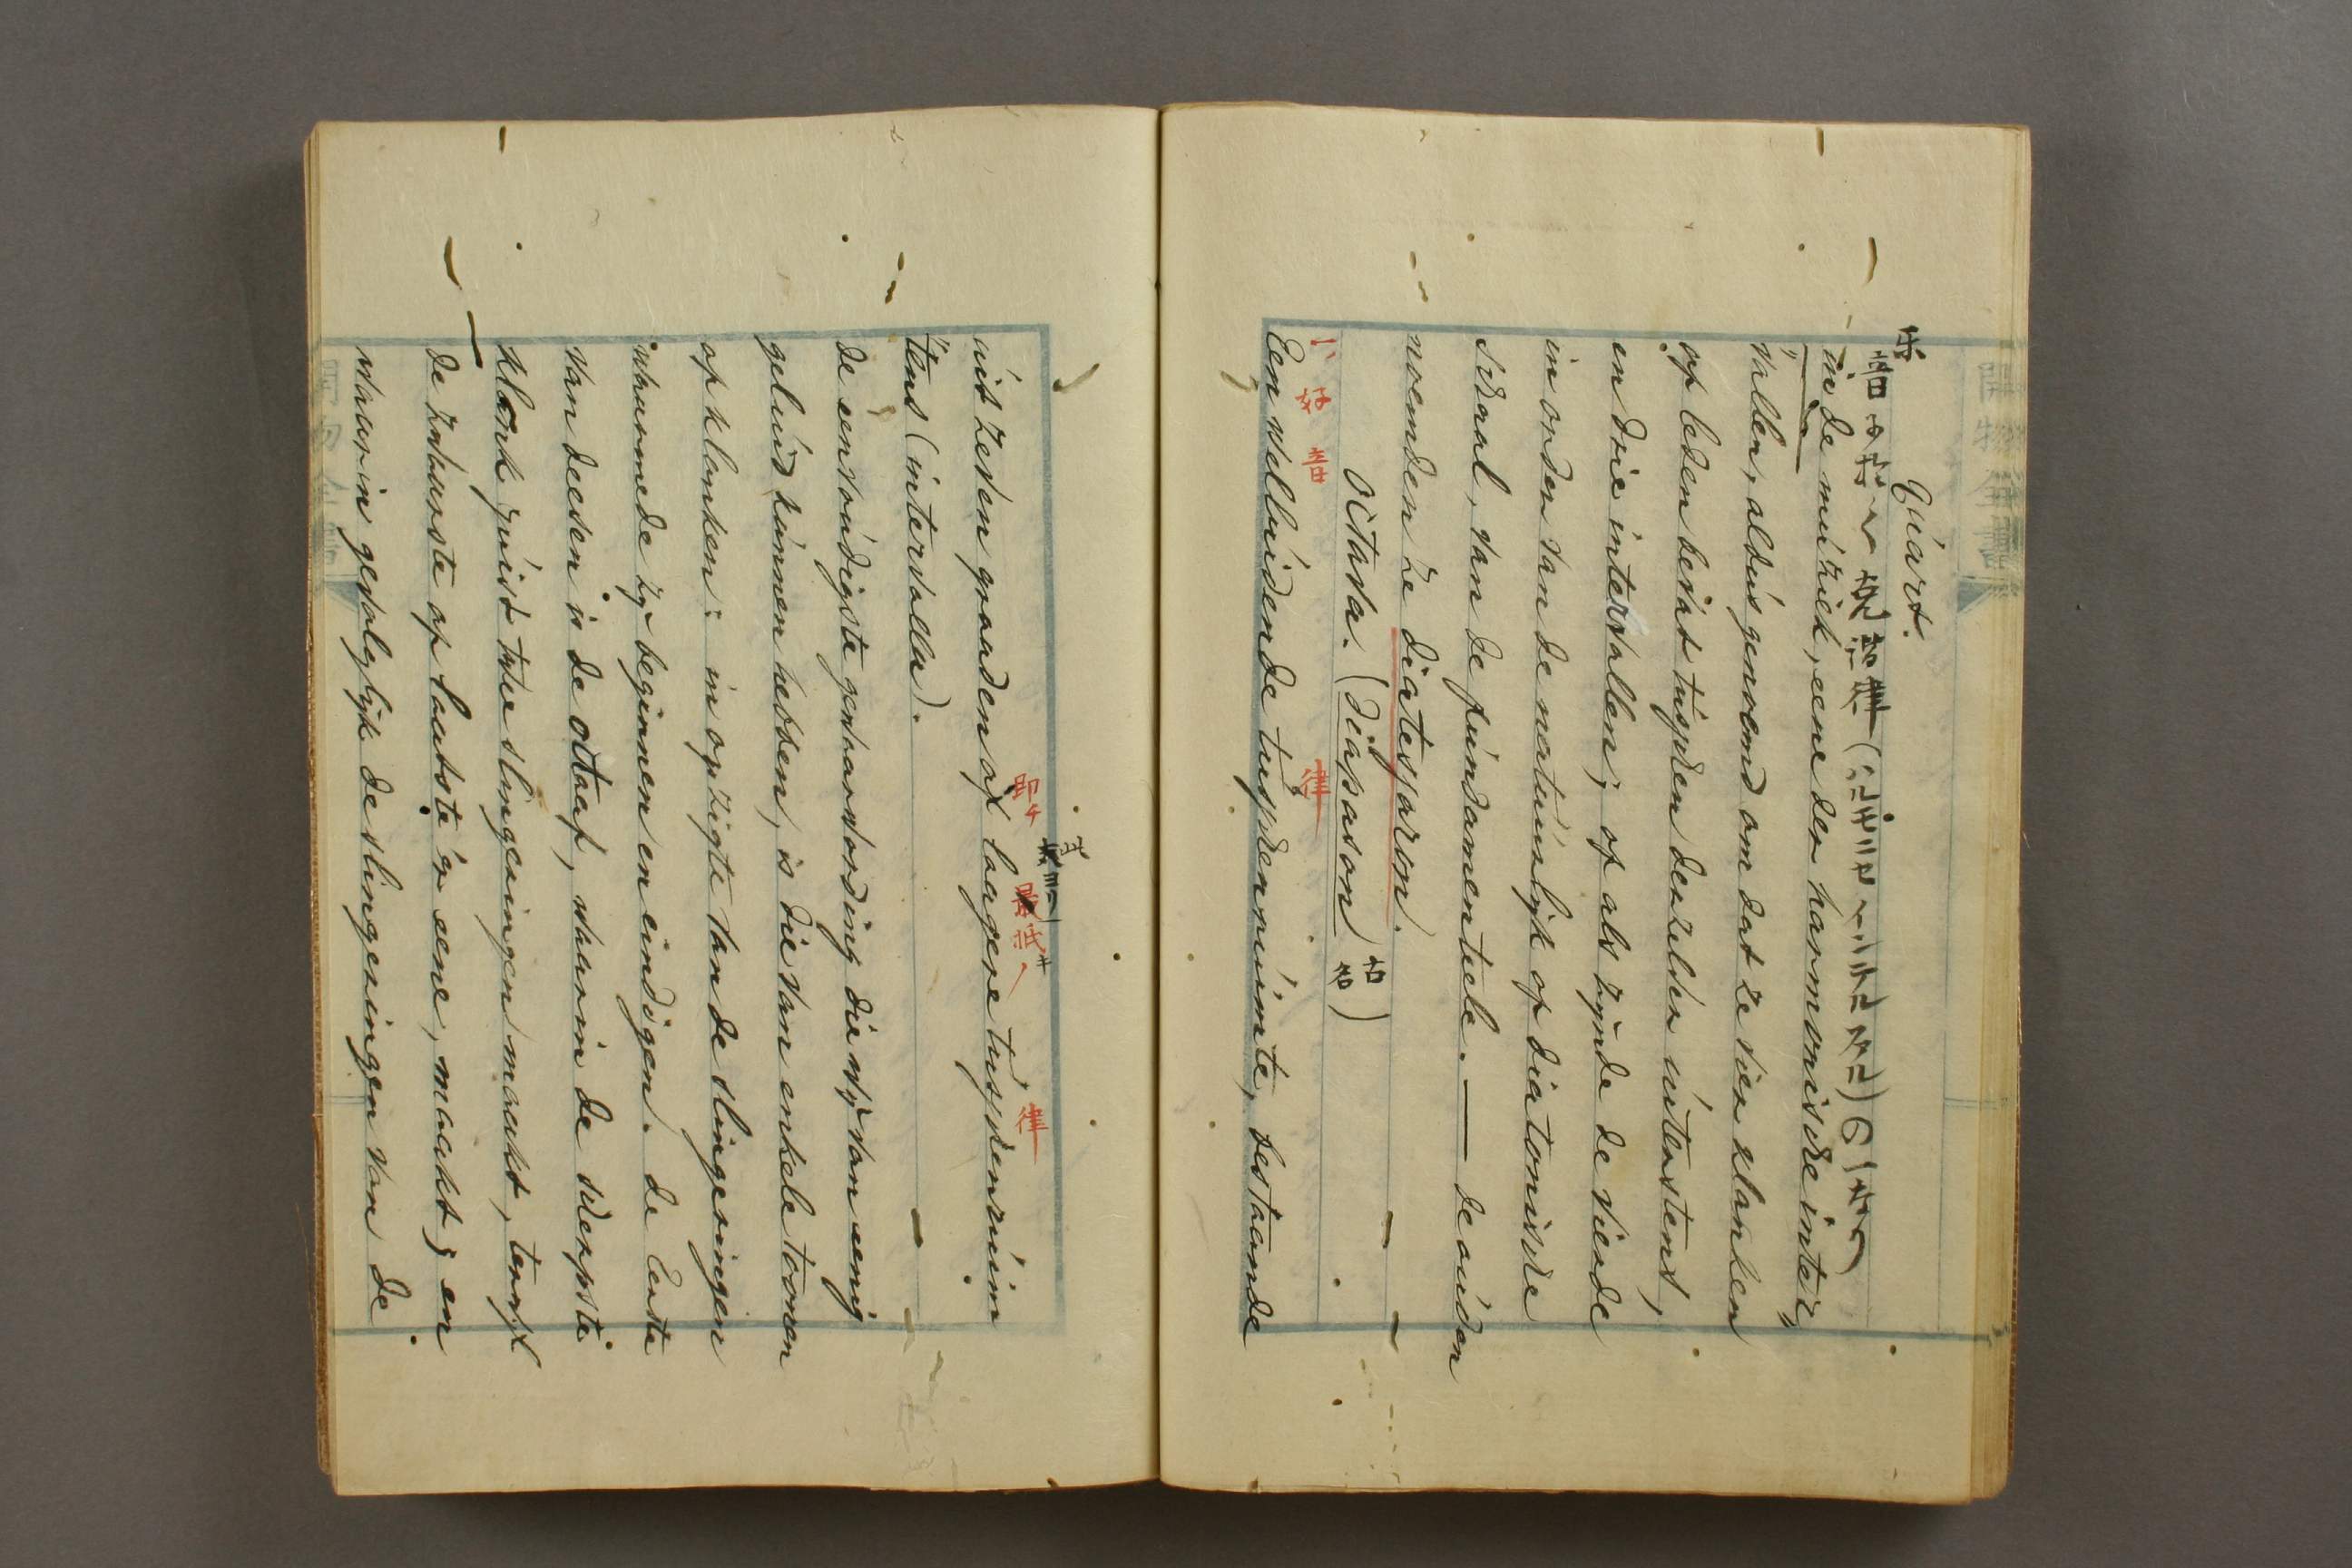 Quart.
樂
音
律
in de muziek, eene der harmonische inter„
„vallen, aldus genoemd om dat ze vier klanken
of leden bevat tusschen deszelver uiterstens,
en drie intervallen; of als zynde de vierde
in orden van de natuurlyk of diatonische
schaal, van de fundamenteele. — de ouden
noemden ze diatessaron.
octava. (diapason 古名)
六 好音 律
Een welluidende tusschenruimte, bestaande
即チ 最低キノ 律
uit zeven graaden of lagere tusschenruim
„tens (intervalla).
de eenvoudigste gewaarwording die wy van eenig
geluid kunnen hebben, is die van enkele toonen
of klanken: in opzigte van de slingeringen
waarmede zy beginnen en eindigen. de Eerste
van deesen is de octaaf, waarin de scherpste
klank juist twee slingeringen maakt, terwyl
de zwaarste of laatste 'er eene, maakt; en
waarin gevolglyk de slingeringen van de